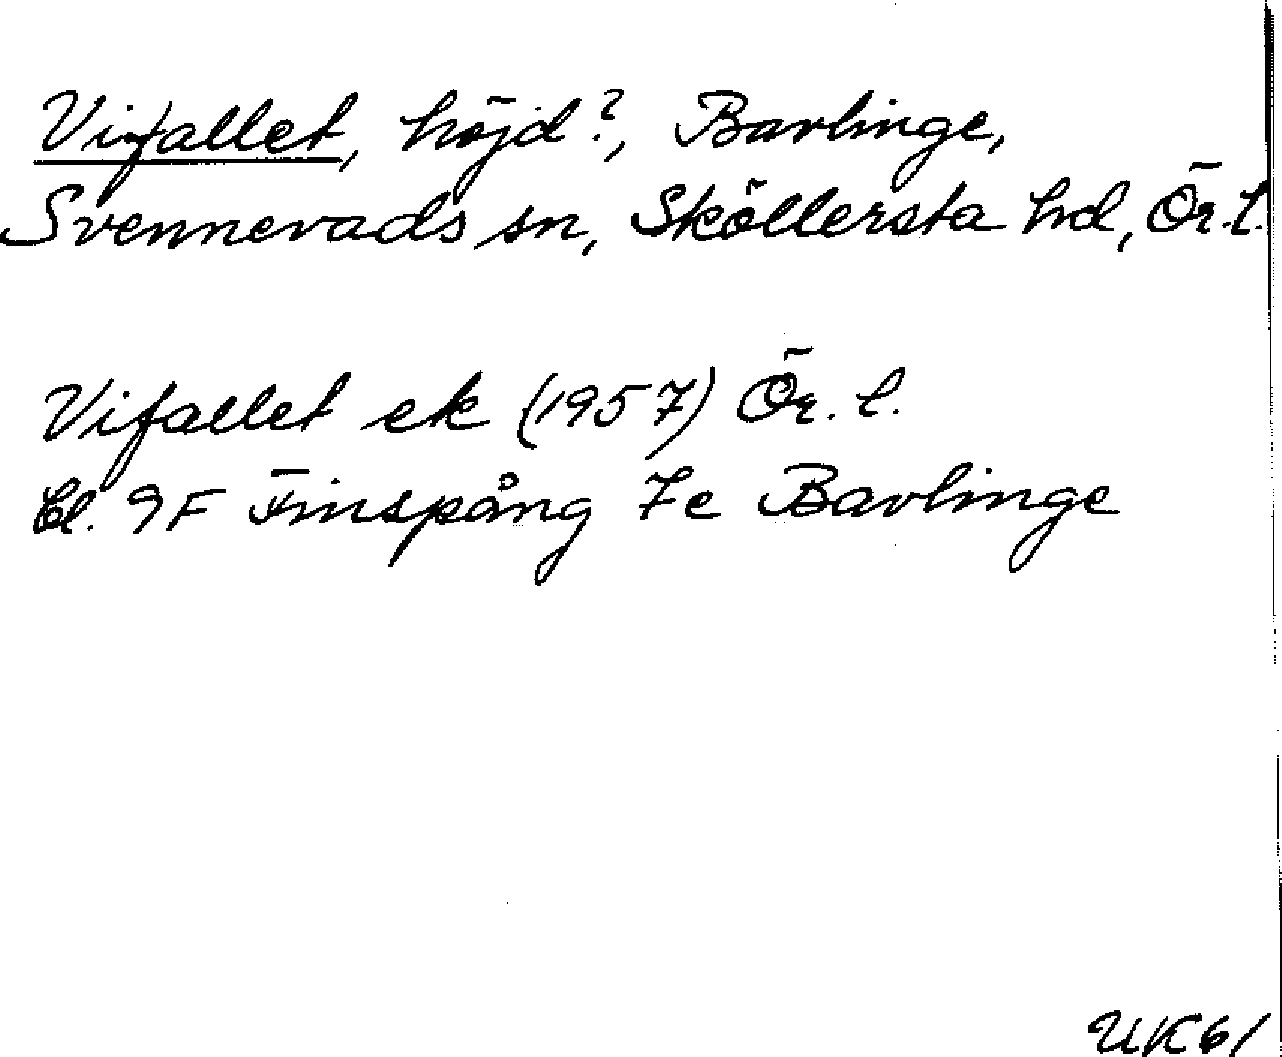 Vifallet, höjd?, Bavlinge,
Svennevads sn, Sköllersta hd, Ör.l.
Vifallet ek (1957) Ör. l.
bl. 9F Finspång 7e Bavlinge
UK61